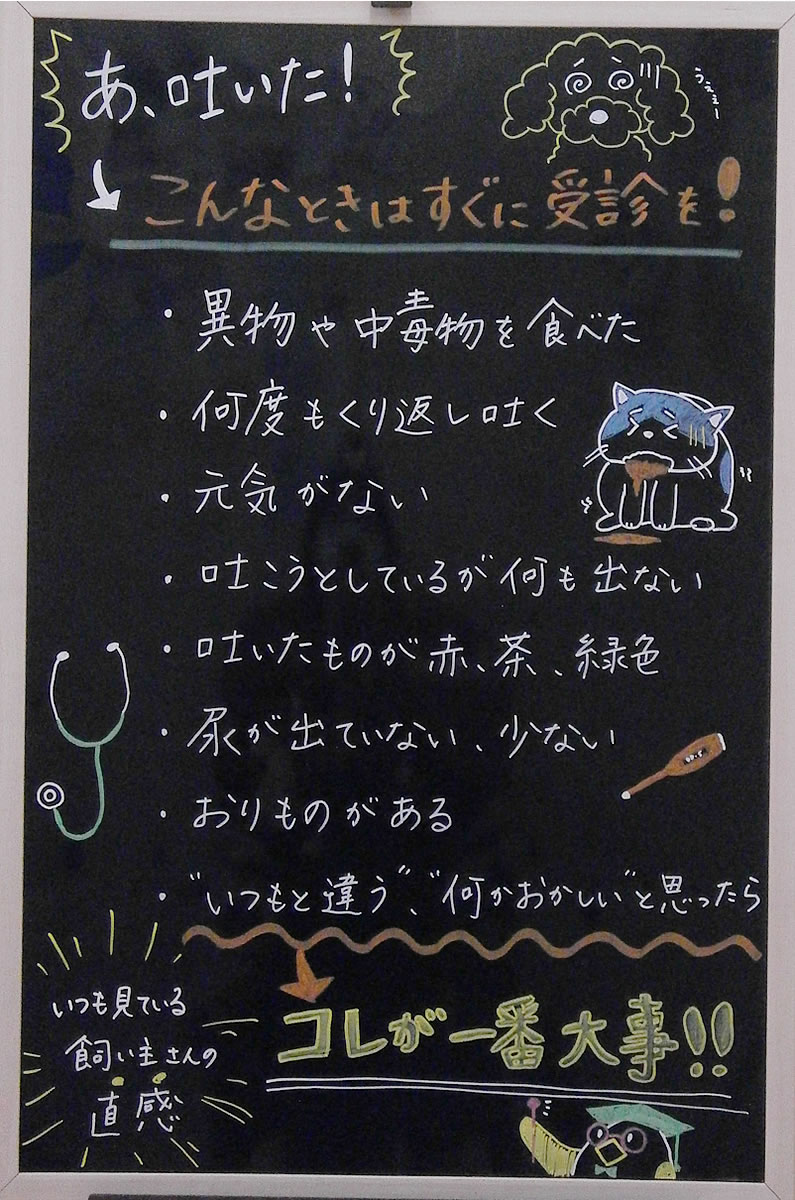 あ、吐いた!
うぇぇー
こんなときはすぐに受診を!
・異物や中毒物を食べた
・何度もくり返し吐く
・元気がない
・吐こうとしているが何も出ない
・吐いたものが赤、茶、緑色
・尿が出ていない、少ない
・おりものがある
・"いつもと違う"、"何かおかしい"と思ったら
コレが一番大事!!
いつも見ている
飼い主さんの
直感